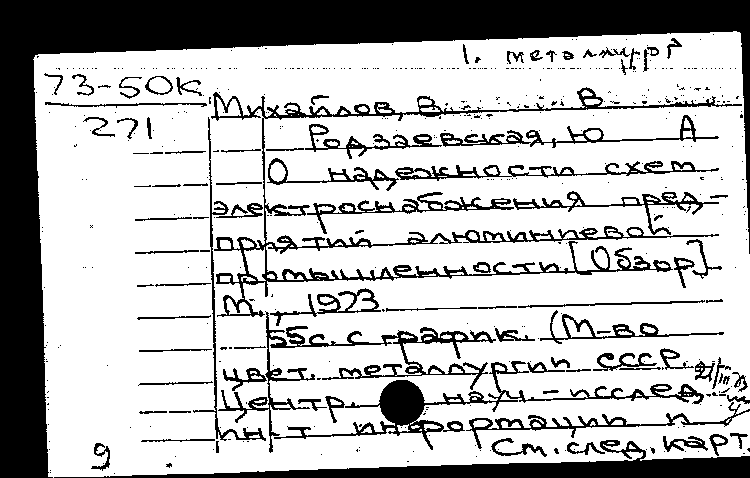 1. металлург
73-50К
271
Михайлов, В В
Родзаевская, Ю А
О надежности схем
электроснабжения пред-
приятий алюминиевой
промышленности. [Обзор]
М., 1973
55с. с график. (М-во
цвет. металлургии СССР.
Центр. науч.-исслед
ин-т информации и
См. след. карт.
9